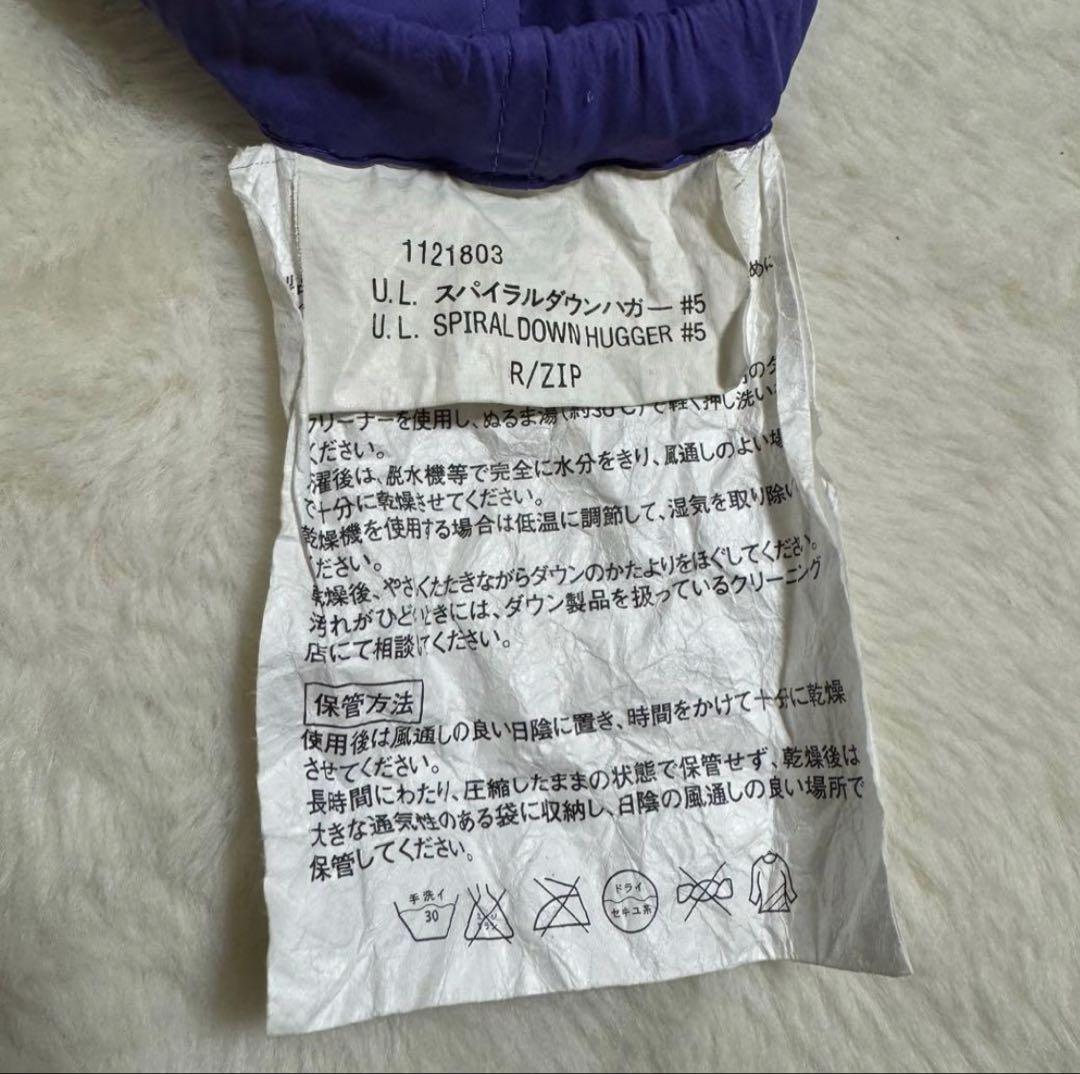 1121803
U.L. スパイラルダウンハガー #5
U.L. SPIRAL DOWN HUGGER #5
R/ZIP
めに
リーナーを使用し、ぬるま湯(約30℃)で軽く押し洗い
ください。
濯後は、脱水機等で完全に水分をきり、風通しのよい場
で十分に乾燥させてください。
乾燥機を使用する場合は低温に調節して、湿気を取り除い
ください。
乾燥後、やさくたたきながらダウンのかたよりをほぐしてください。
汚れがひどときには、ダウン製品を扱っているクリーニング
店にて相談ください。
保管方法
使用後は風通しの良い日陰に置き、時間をかけて十分に乾燥
させてください。
長時間にわたり、圧縮したままの状態で保管せず、乾燥後は
大きな通気性のある袋に収納し、日陰の風通しの良い場所で
保管してください。
手洗イ
30
ドライ
セキユ系